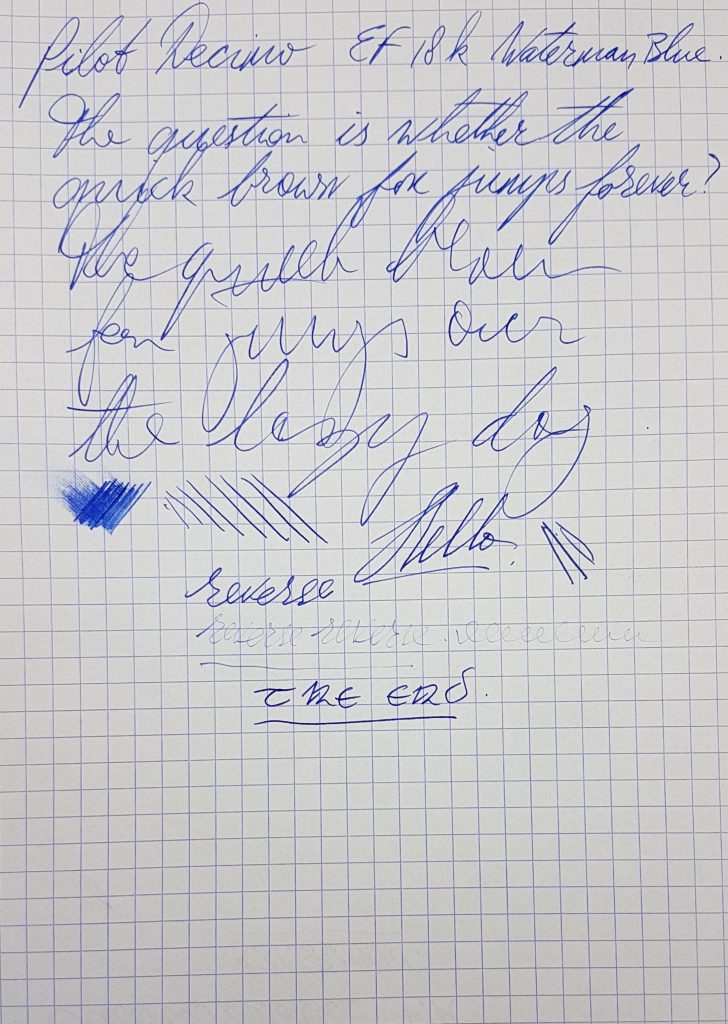 Pilot Decimo EF 18k Waterman Blue.
The question is whether the
quick brown fox jumps forever?
The quick brown
fox jumps over
the lazy dog
Hello.
reverse
reverse reverse.
THE END.